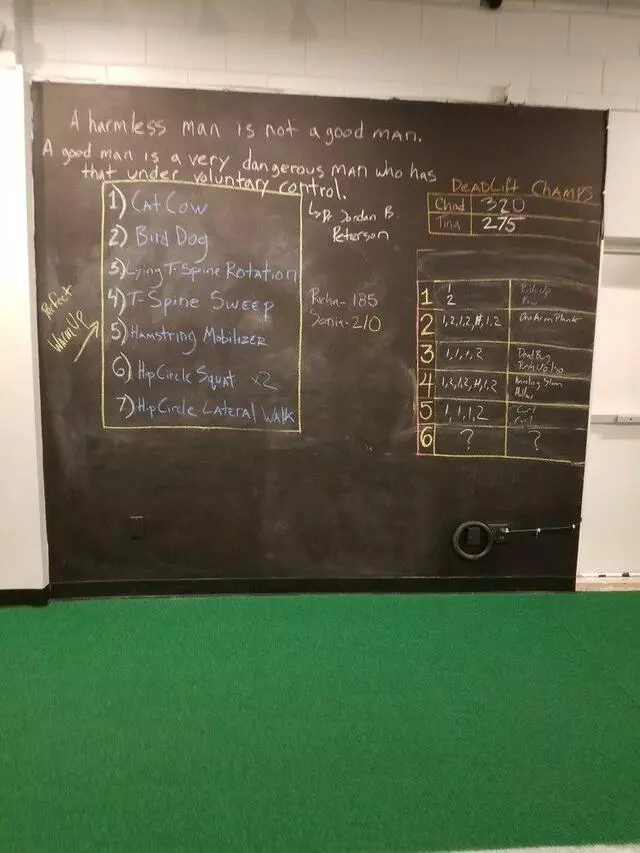 A harmless man is not a good man.
A good man is a very dangerous man who has
that under voluntary control.
↳ Dr. Jordan B.
Peterson
Perfect
Warm Up
1) Cat Cow
2) Bird Dog
3) Lying T-Spine Rotation
4) T-Spine Sweep
5) Hamstring Mobilizer
6) Hip Circle Squat x2
7) Hip Circle Lateral Walk
185
Sonia- 210
Deadlift Champs
Chad 320
Tina 275
1 1 Push Up
2
2 1,2,1,2,H,1,2 One Arm Plank
3 1,1,1,2 Dead Bug
Push Up Iso
4 1,2,1,2,H,1,2 Slam
Hollow
5 1,1,1,2 Curl
Curl
6 ? ?